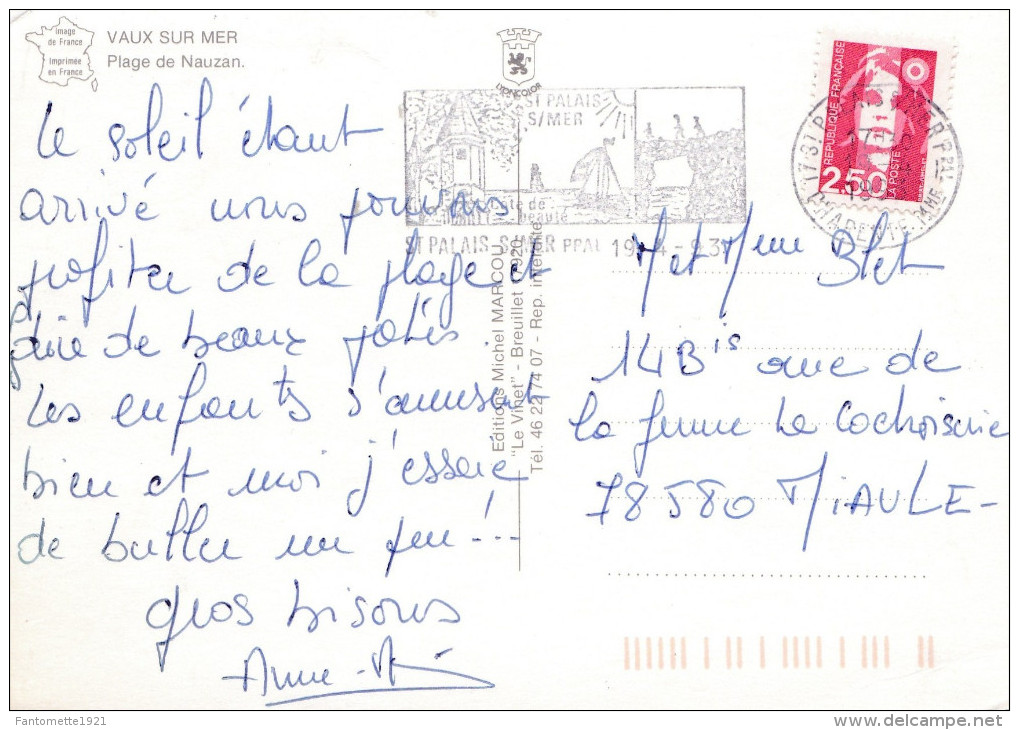 Image
de France
Imprimée
en France
VAUX SUR MER
Plage de Nauzan.
LYONCOLOR
Le soleil étant
arrivé nous pouvons
profiter de la plage et
faire de beaux pâtés.
Les enfants s'amusent
bien et moi j'essaie
de buller un peu!...
gros bisous
Anne-
ST PALAIS
S/MER
beauté
ST PALAIS-S-MER PPAL 19-4-93
Editions Michel MARCOU
"Le Vinet" - Breuillet 17920
Tél. 46 22 74 07 - Rep. interdite
REPUBLIQUE FRANÇAISE
2,50
LA POSTE
CHARENTE-
M et Mme Blet
14 Bis rue de
la ferme La Cochoiserie
78580 MAULE-
Fantomette1921
www.delcampe.net